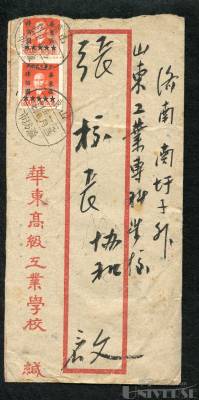 濟南南圩子外
山東工業專科學校
張校長協和
啟
華東高級工業學校 緘
UNIVERSE